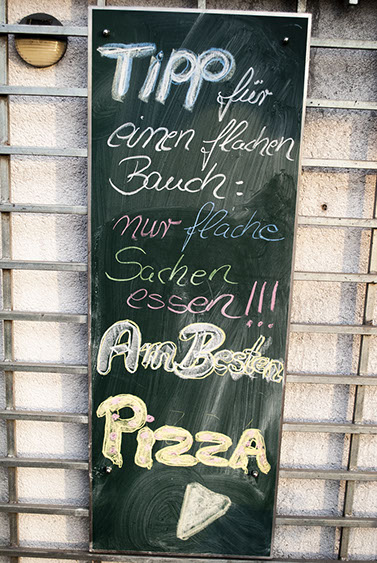 Tipp für
einen flachen
Bauch:
nur fläche
Sachen
essen!!!
Am Besten
Pizza